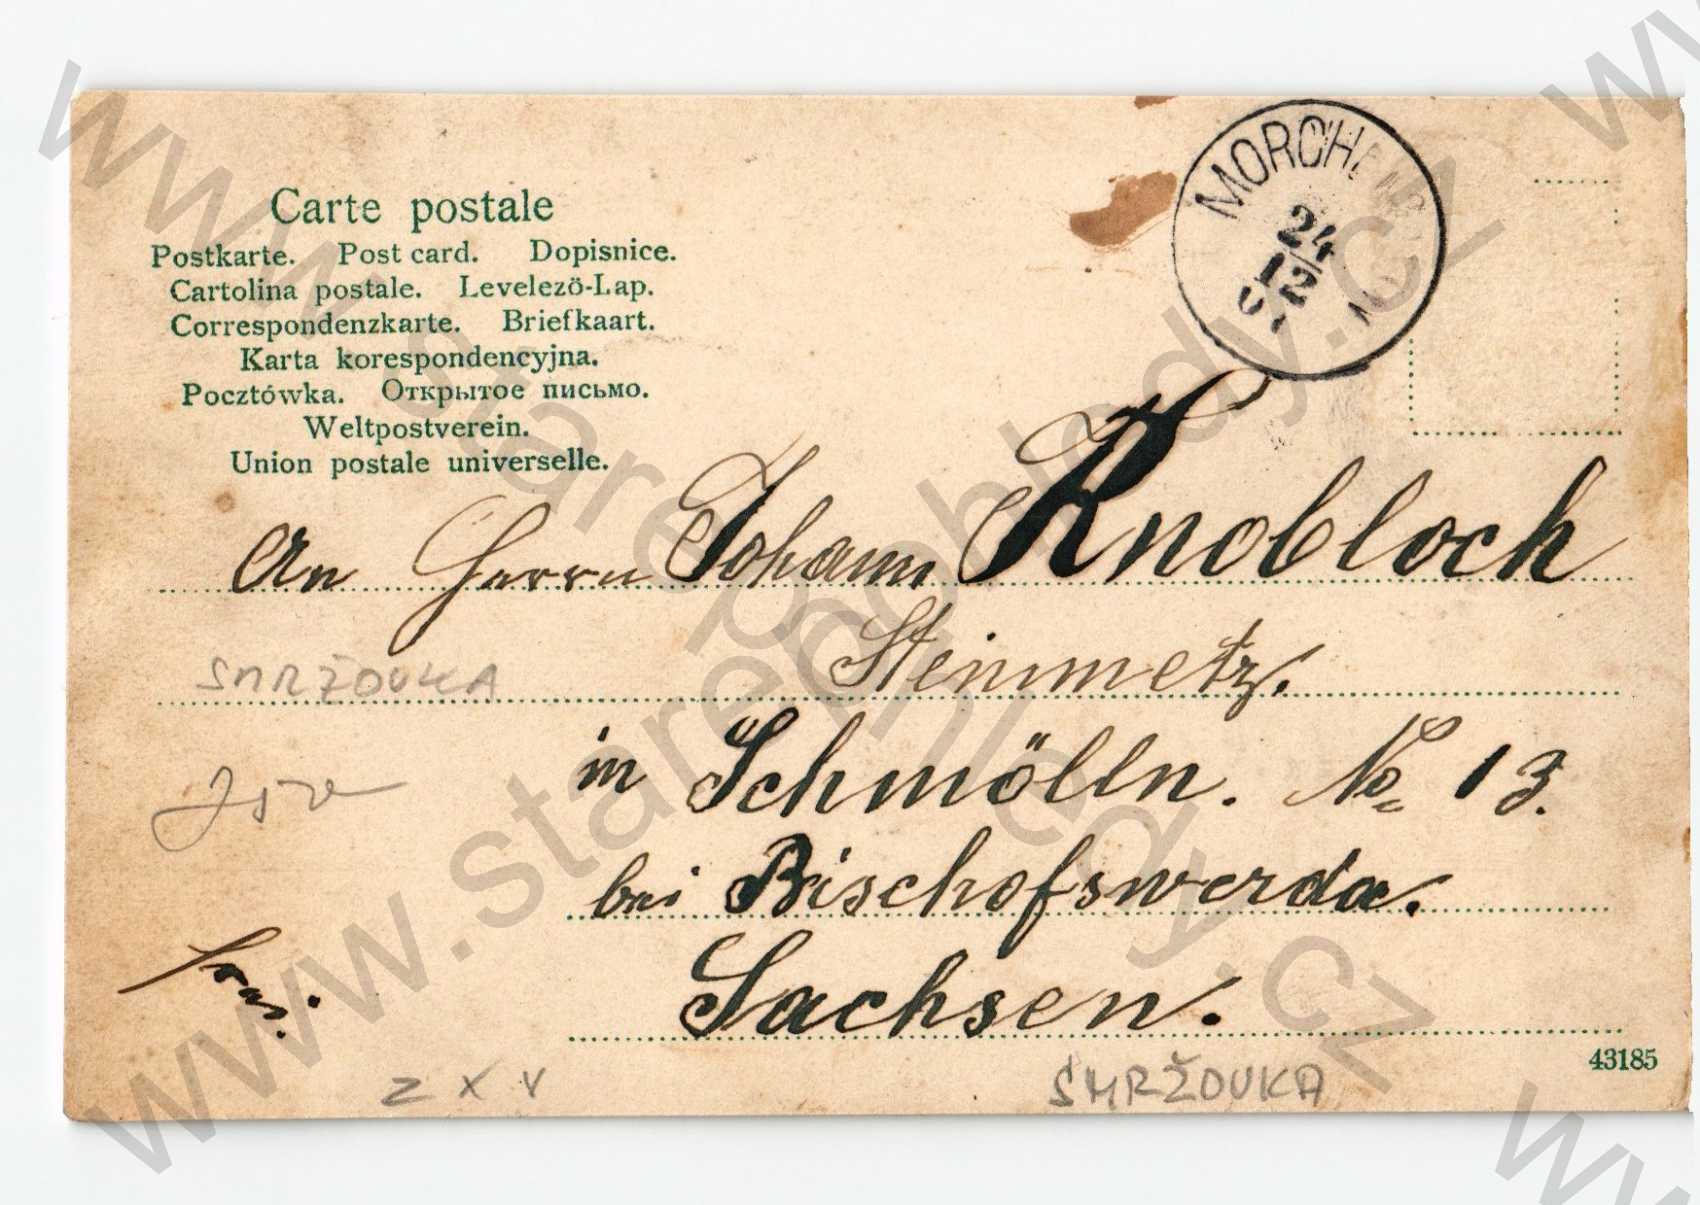 Carte postale
Postkarte. Post card. Dopisnice.
Cartolina postale. Levelező-Lap.
Correspondenzkarte. Briefkaart.
Karta korespondencyjna.
Pocztówka. Открытое письмо.
Weltpostverein.
Union postale universelle.
MORCHENSTERN
24
12
An Herrn Johann Knobloch
Steinmetz.
SMRŽOVKA
in Schmölln. No 13.
bei Bischofswerda.
Sachsen.
43185
Z X V
SMRŽOVKA
www.starepohledy.cz
www.starepohledy.cz